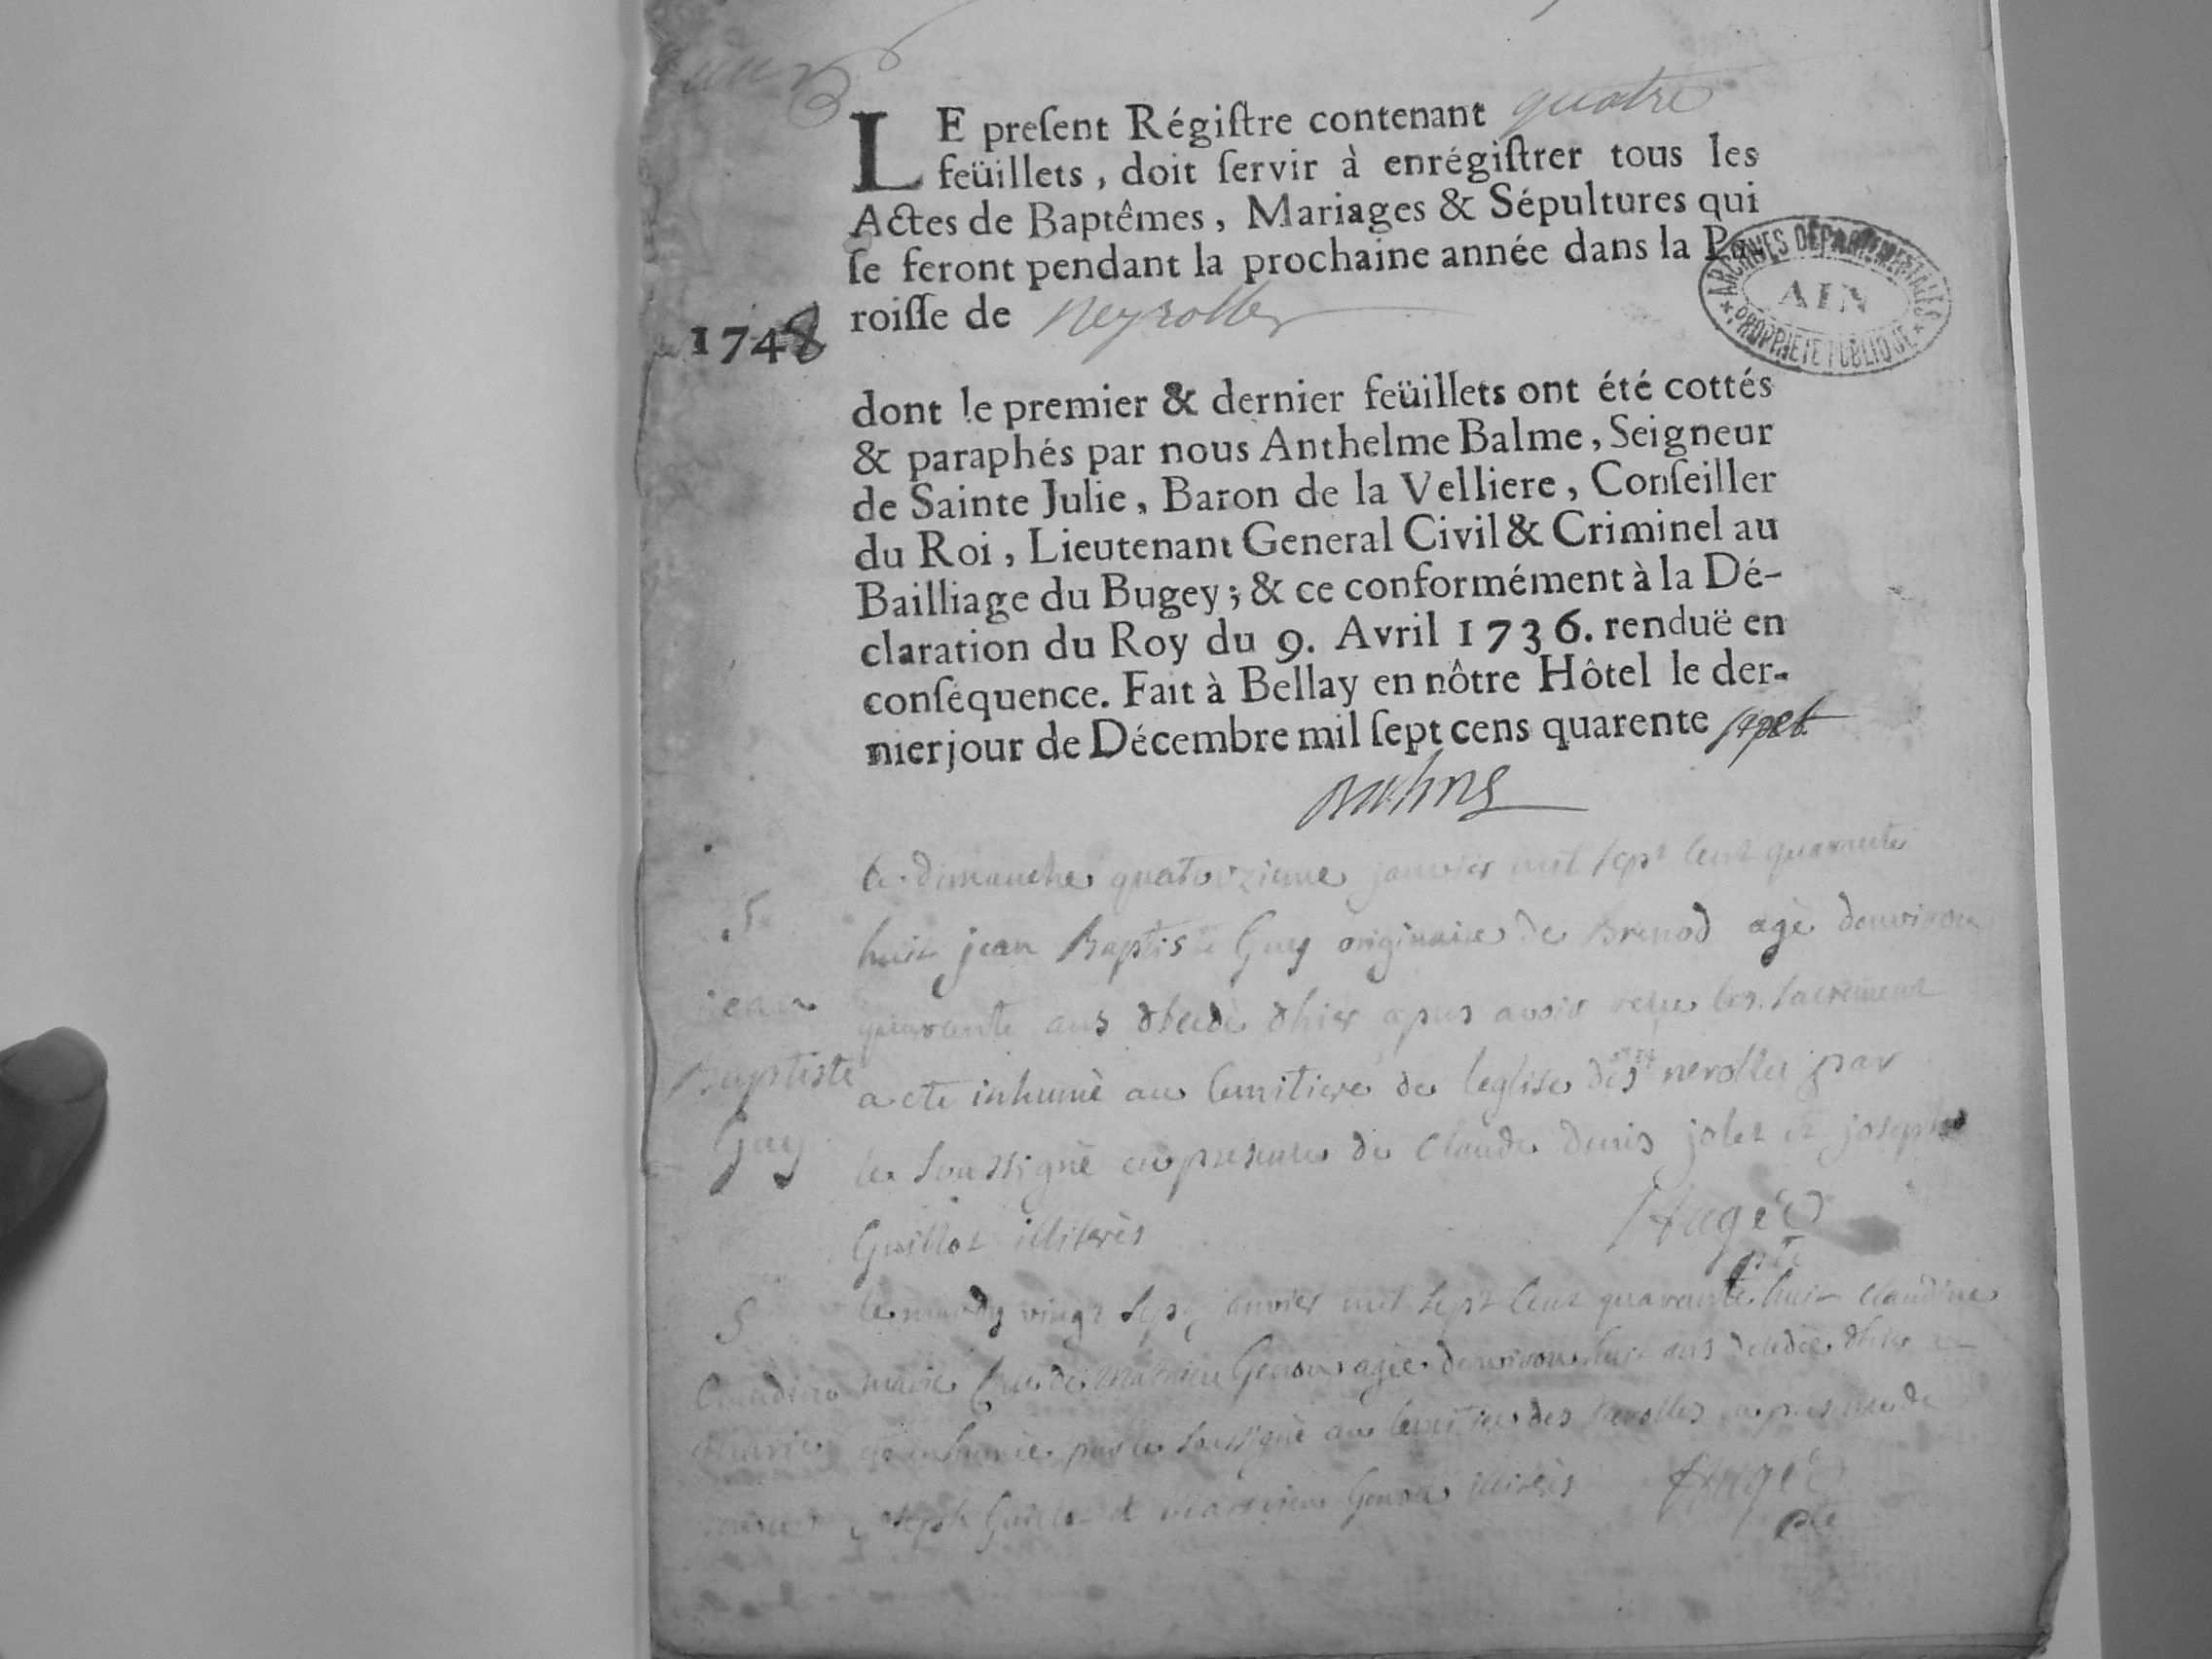 LE preſent Régiſtre contenant quatre
feüillets, doit ſervir à enrégiſtrer tous les
Actes de Baptêmes, Mariages & Sépultures qui
ſe feront pendant la prochaine année dans la Pa-
roiſſe de Neyrolles
1748
ARCHIVES DEPARTEMENTALES
AIN
PROPRIETE PUBLIQUE
dont le premier & dernier feüillets ont été cottés
& paraphés par nous Anthelme Balme, Seigneur
de Sainte Julie, Baron de la Velliere, Conſeiller
du Roi, Lieutenant General Civil & Criminel au
Bailliage du Bugey; & ce conformément à la Dé-
claration du Roy du 9. Avril 1736. renduë en
conſequence. Fait à Bellay en nôtre Hôtel le der-
nier jour de Décembre mil ſept cens quarente sept
le dimanche quatorzieme janvier mil sept cent quarante
S
huit jean Baptiste Guy originaire de Brenod agé denviron
jean
quarante ans décédé dhier apres avoir reçu les sacrement
Baptiste
a eté inhumé au cemitiere de leglise des nerolles par
Guy
le soussigné en presence de Claude denis jolet et joseph
Guillot illiterés
S
vingt sept janvier mil sept cent quarante huit claudine
Claudine marie agée denviron huit ans décédée dhier
marie inhumée par le soussigné au cemitiere des nerolles
joseph Guillot et illiterés